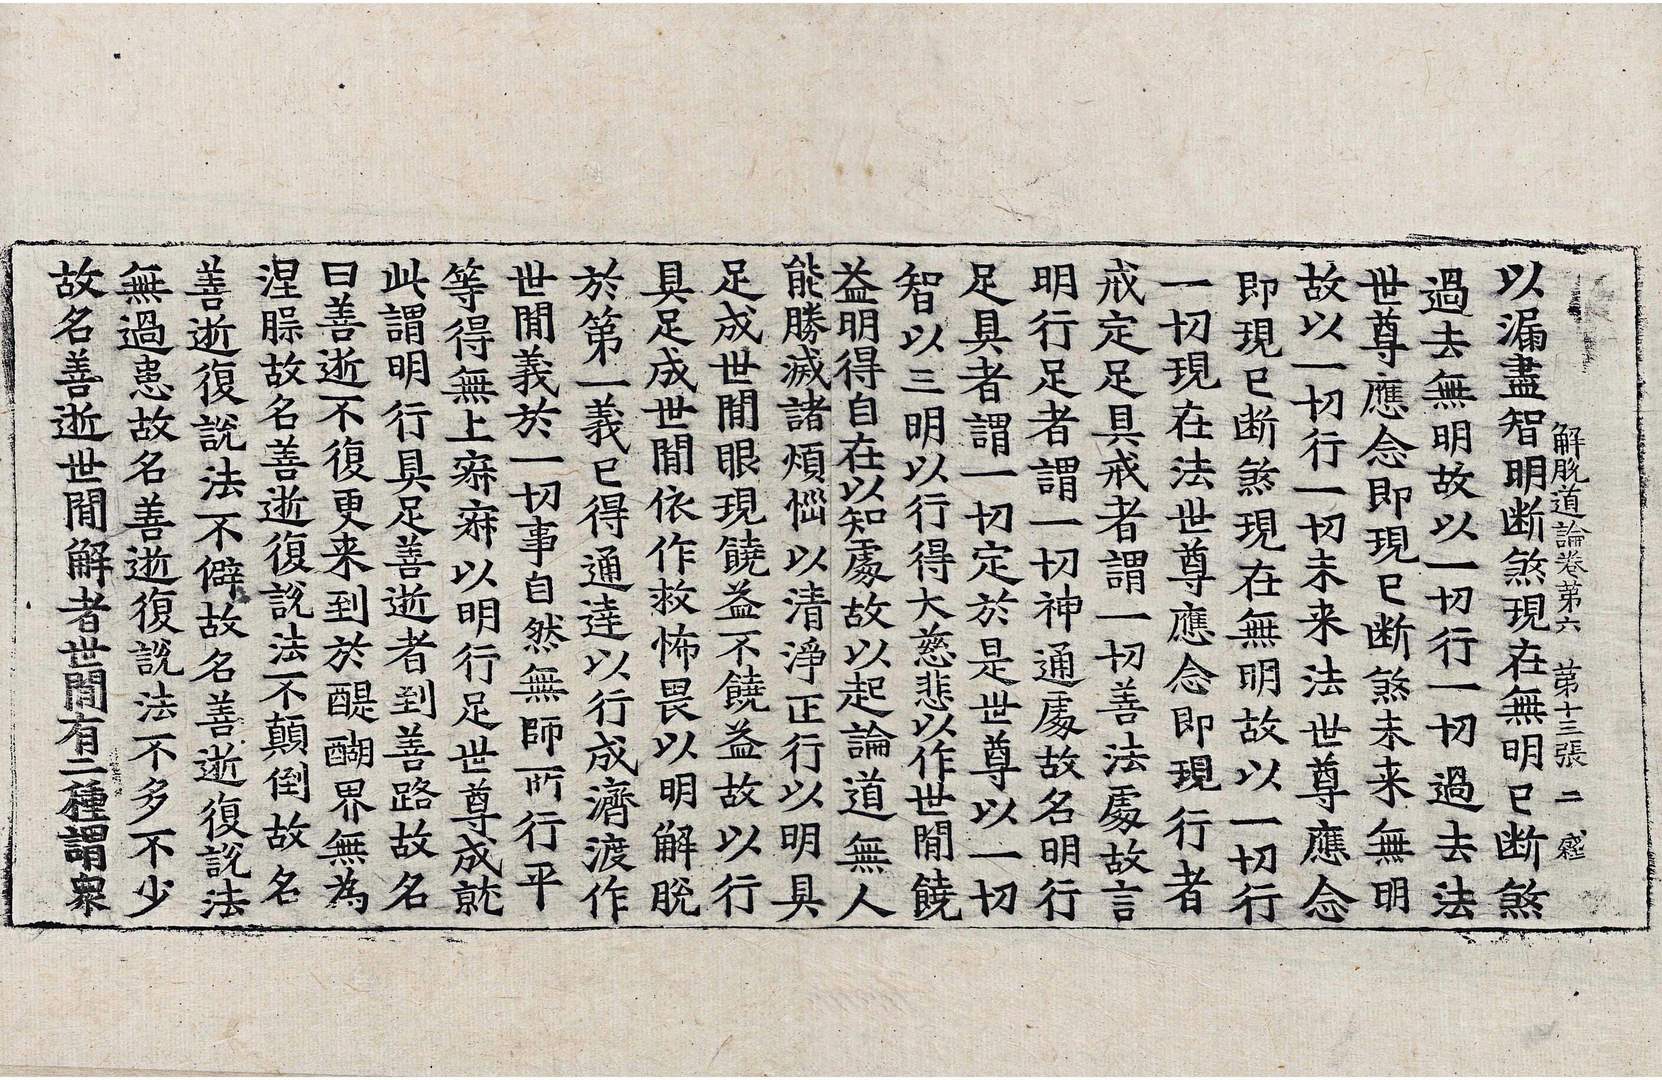 解脫道論卷第六 第十三張 二 盛
以漏盡智明断煞現在無明已断煞
過去無明故以一切行一切過去法
世尊應念即現已断煞未来無明
故以一切行一切未来法世尊應念
即現已断煞現在無明故以一切行
一切現在法世尊應念即現行者
戒定足具戒者謂一切善法處故言
明行足者謂一切神通處故名明行
足具者謂一切定於是世尊以一切
智以三明以行得大慈悲以作世間饒
益明得自在以知處故以起論道無人
能勝滅諸煩惱以清淨正行以明具
足成世間眼現饒益不饒益故以行
具足成世間依作救怖畏以明解脫
於第一義已得通達以行成濟渡作
世間義於一切事自然無師所行平
等得無上寂寂以明行足世尊成就
此謂明行具足善逝者到善路故名
曰善逝不復更来到於醍醐界無為
涅槃故名善逝復說法不顛倒故名
善逝復說法不僻故名善逝復說法
無過患故名善逝復說法不多不少
故名善逝世間解者世間有二種謂衆